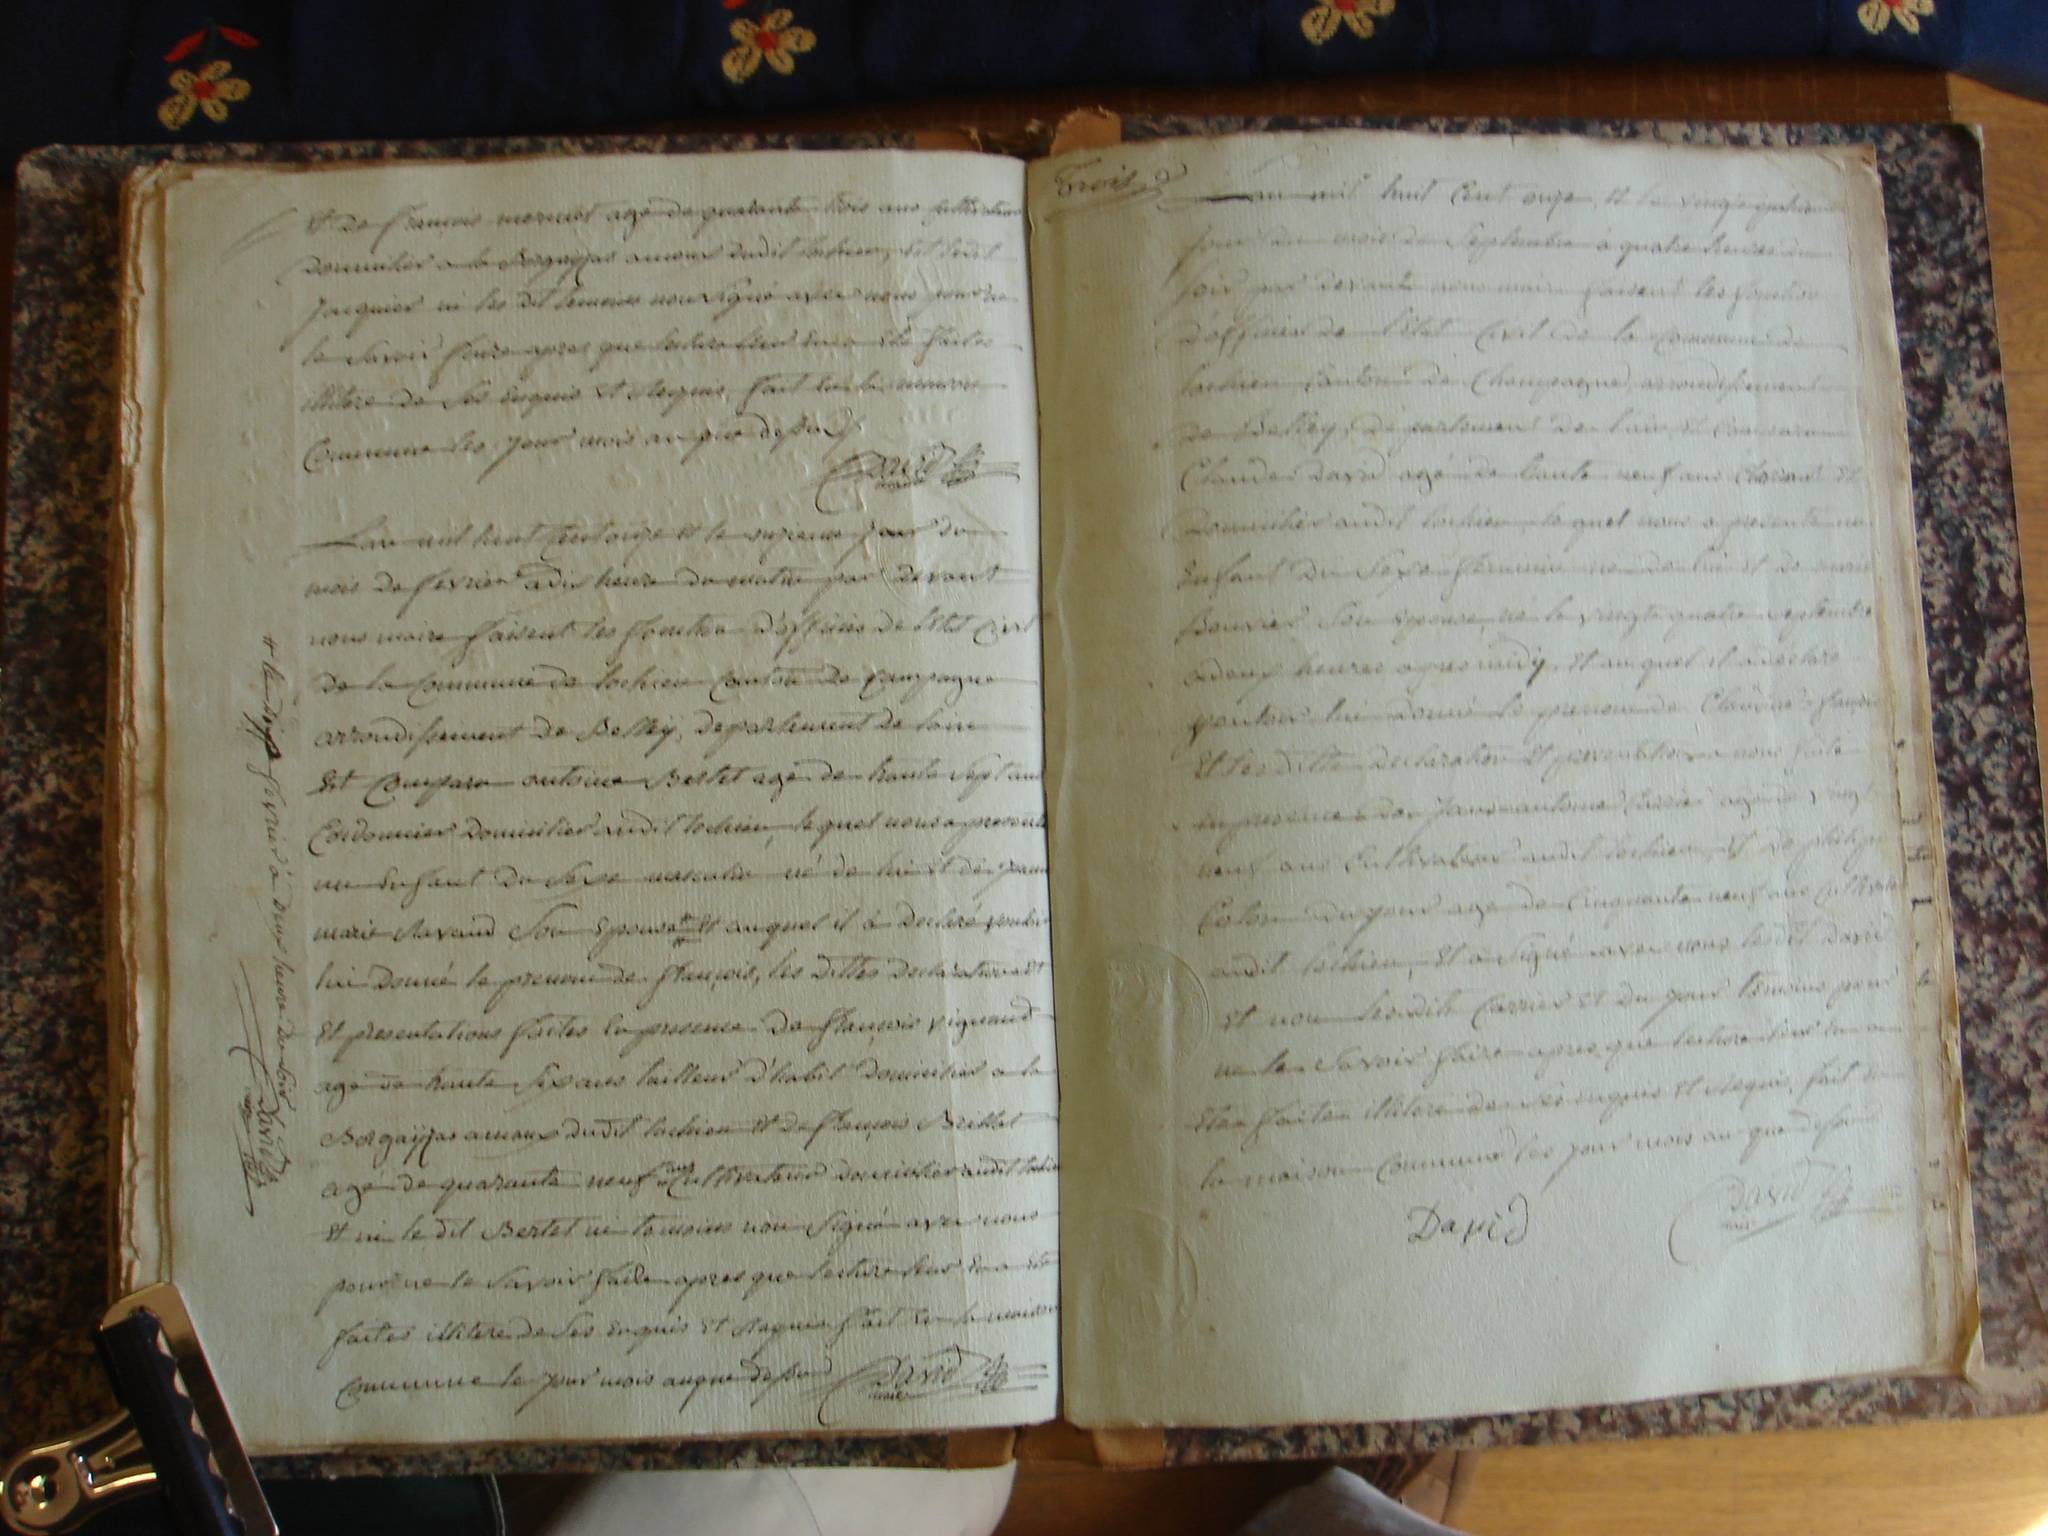 Et de françois mermet agé de quarante trois ans cultivateur
domicilier a la Bergayzas amoux dudit lochieu, Et ledit
Jacquier ni les dit temoins non signé avec nous pour ne
le savoir faire apres que lecture leur en a Eté faites
illitere de ses enquis Et Requis fait En la maison
Commune les jour mois an que dessus
David
maire
Lan mil huit Cent onze Et le onzieme jour du
mois de fevrier a dix heure du matin par devant
nous maire faisent les fonction d'officier de l'état Civil
de la Commune de lochieu Canton de Campagne
arrondissement de Belley, departement de lain
Est Comparu antoine Bertet agé de trante Sept ans
Cordonnier domicilier audit lochieu, le quel nous a presenté
un Enfant du Sexe masculin né de lui Et de jeanne
marie Ravaud Son Epouse Et auquel il à declaré vouloir
lui donné le prenom de françois, les dittes declaration Et
Et presentations faites En presence de françois vignand
agé de trante Six ans tailleur d'habit domicilier a la
Bergayzas amoux dudit lochieu Et de françois Brillat
agé de quarante neuf ans Cultivateur domicilier audit lochieu
Et ni le dit Bertet ni temoins non Signé avec nous
pour ne le Savoir faire apres que lecture leur En a Eté
faites illitere de Ses Enquis Et Requis fait En la maison
Commune le jour mois an que dessus
David
maire
fevrier à deux heure du Soir
David
maire
Trois
Lan mil huit Cent onze, Et le vingt quatrieme
jour du mois de Septembre à quatre heures du
soir par devant nous maire faisent les fonction
d'officier de l'état Civil de la Commune de
lochieu Canton de Champagne, arrondissement
de Belley, departement de lain, Et Comparu
Claude David agé de trante neuf ans Et
domicilier audit lochieu le quel nous a presenté un
Enfant du Sexe feminin né de lui Et de marie
Bouvier Son Epouse, né le vingte quatre Septembre
a deux heures apres midy, Et auquel il a declaré
vouloir lui donné le prenom de Claudine françoise
Et les dittes declaration Et presentation a nous faite
En presence de Jean antoine Carrier agé de vingt
neuf ans Cultivateur audit lochieu, Et de philipe
du jour agé de Cinquante neuf ans Cultivateur
audit lochieu, Et a Signé avec nous ledit David
Et non lesdits Carrier Et du jour temoins pour
ne le Savoir faire apres que lecture leur En a
Eté faite illitere de Ses enquis Et Requis, fait En
la maison Commune les jour mois an que dessus
David
David
maire